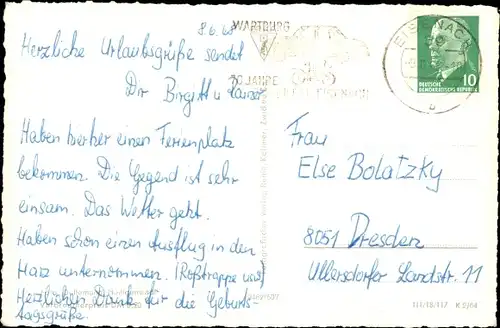 8.6.68
Herzliche Urlaubsgrüße sendet
Dir Birgitt u.
Haben hierher einen Ferienplatz
bekommen. Die Gegend ist sehr
einsam. Das Wetter geht.
Haben schon einen Ausflug in den
Harz unternommen. (Roßtrappe usw.)
Herzlichen Dank für die Geburts-
tagsgrüße.
WARTBURG
70 JAHRE
EISENACH
DEUTSCHE
DEMOKRATISCHE REPUBLIK
10
Frau
Else Bolatzky
8051 Dresden
Ullersdorfer Landstr. 11
III/18/117 K 2/64